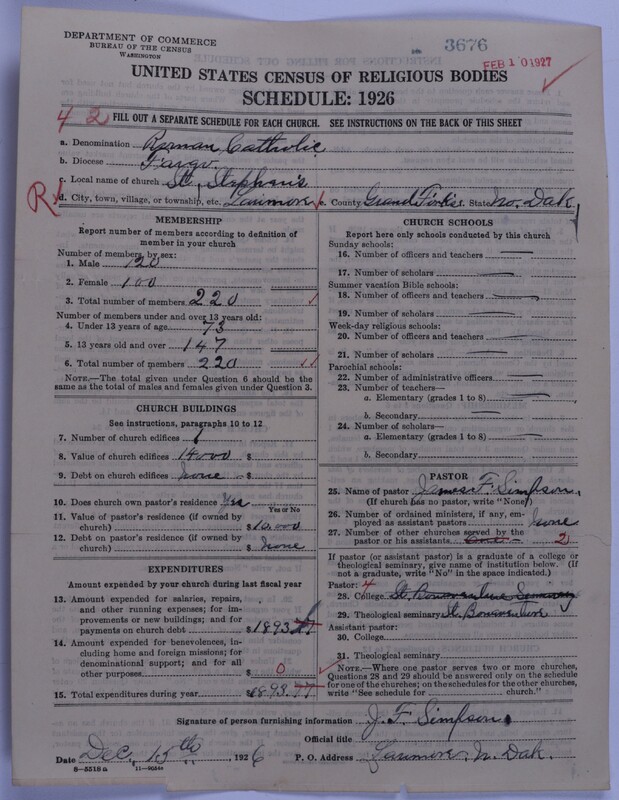 DEPARTMENT OF COMMERCE
BUREAU OF THE CENSUS
WASHINGTON
3676
FEB 10 1927
UNITED STATES CENSUS OF RELIGIOUS BODIES
SCHEDULE: 1926
4 2 FILL OUT A SEPARATE SCHEDULE FOR EACH CHURCH. SEE INSTRUCTIONS ON THE BACK OF THIS SHEET
a. Denomination Roman Catholic
b. Diocese Fargo
c. Local name of church St. Stephen's
R d. City, town, village, or township, etc. Larimore e. County Grand Forks State No. Dak
MEMBERSHIP
Report number of members according to definition of
member in your church
Number of members by sex:
1. Male 120
2. Female 100
3. Total number of members 220
Number of members under and over 13 years old:
4. Under 13 years of age 73
5. 13 years old and over 147
6. Total number of members 220
NOTE.—The total given under Question 6 should be the
same as the total of males and females given under Question 3.
CHURCH BUILDINGS
See instructions, paragraphs 10 to 12
7. Number of church edifices 1
8. Value of church edifices 14000 $
9. Debt on church edifices none $
10. Does church own pastor's residence Yes
Yes or No
11. Value of pastor's residence (if owned by
church) $10,000
12. Debt on pastor's residence (if owned by
church) $ none
EXPENDITURES
Amount expended by your church during last fiscal year
13. Amount expended for salaries, repairs,
and other running expenses; for im-
provements or new buildings; and for
payments on church debt $1893
14. Amount expended for benevolences, in-
cluding home and foreign missions; for
denominational support; and for all
other purposes $ 0
15. Total expenditures during year $1893.77
CHURCH SCHOOLS
Report here only schools conducted by this church
Sunday schools:
16. Number of officers and teachers
17. Number of scholars
Summer vacation Bible schools:
18. Number of officers and teachers
19. Number of scholars
Week-day religious schools:
20. Number of officers and teachers
21. Number of scholars
Parochial schools:
22. Number of administrative officers
23. Number of teachers—
a. Elementary (grades 1 to 8)
b. Secondary
24. Number of scholars—
a. Elementary (grades 1 to 8)
b. Secondary
PASTOR
25. Name of pastor James F. Simpson
(If church has no pastor, write "None")
26. Number of ordained ministers, if any, em-
ployed as assistant pastors None
27. Number of other churches served by the
pastor or his assistants 2
If pastor (or assistant pastor) is a graduate of a college or
theological seminary, give name of institution below. (If
not a graduate, write "No" in the space indicated.)
Pastor: 4
28. College St. Bonaventure Seminary
29. Theological seminary St. Bonaventure
Assistant pastor:
30. College
31. Theological seminary
NOTE.—Where one pastor serves two or more churches,
Questions 28 and 29 should be answered only on the schedule
for one of the churches; on the schedules for the other churches,
write "See schedule for church."
Signature of person furnishing information J. F. Simpson
Official title
Date Dec. 15th, 1926 P. O. Address Larimore, N. Dak.
8—5518a 11—9064a